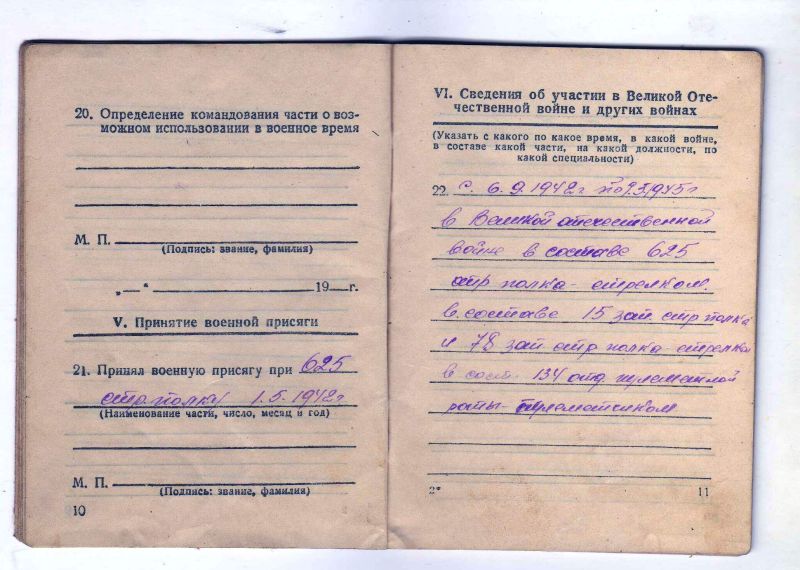 20. Определение командования части о воз-
можном использовании в военное время
М. П.
(Подпись: звание, фамилия)
„—“ 19 г.
V. Принятие военной присяги
21. Принял военную присягу при 625
стр. полку 1.5.1942 г
(Наименование части, число, месяц и год)
М. П.
(Подпись: звание, фамилия)
10
VI. Сведения об участии в Великой Оте-
чественной войне и других войнах
(Указать с какого по какое время, в какой войне,
в составе какой части, на какой должности, по
какой специальности)
22. с 6.9.1942 г по 9.5.1945 г
в Великой отечественной
войне в составе 625
стр полка - стрелком.
в составе 15 зап. стр полка
и 78 зап стр полка - стрелком
в сост. 134 отд пулеметной
роты -
2*
11